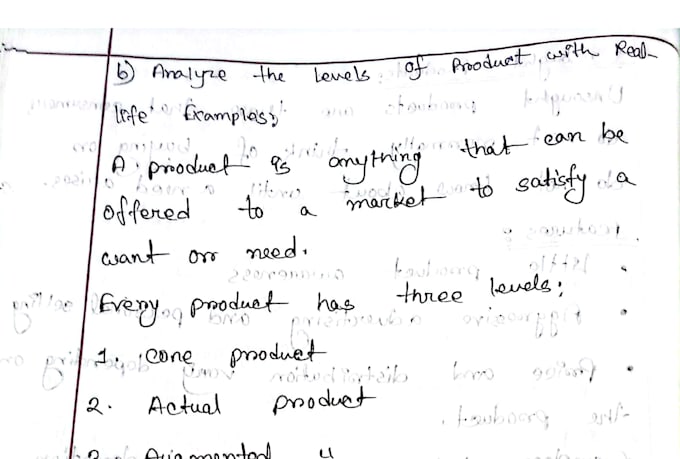 b) Analyze the levels of Product, with Real
life Examples;
A product is anything that can be
offered to a market to satisfy a
want or need.
Every product has three levels;
1. Core product
2. Actual product